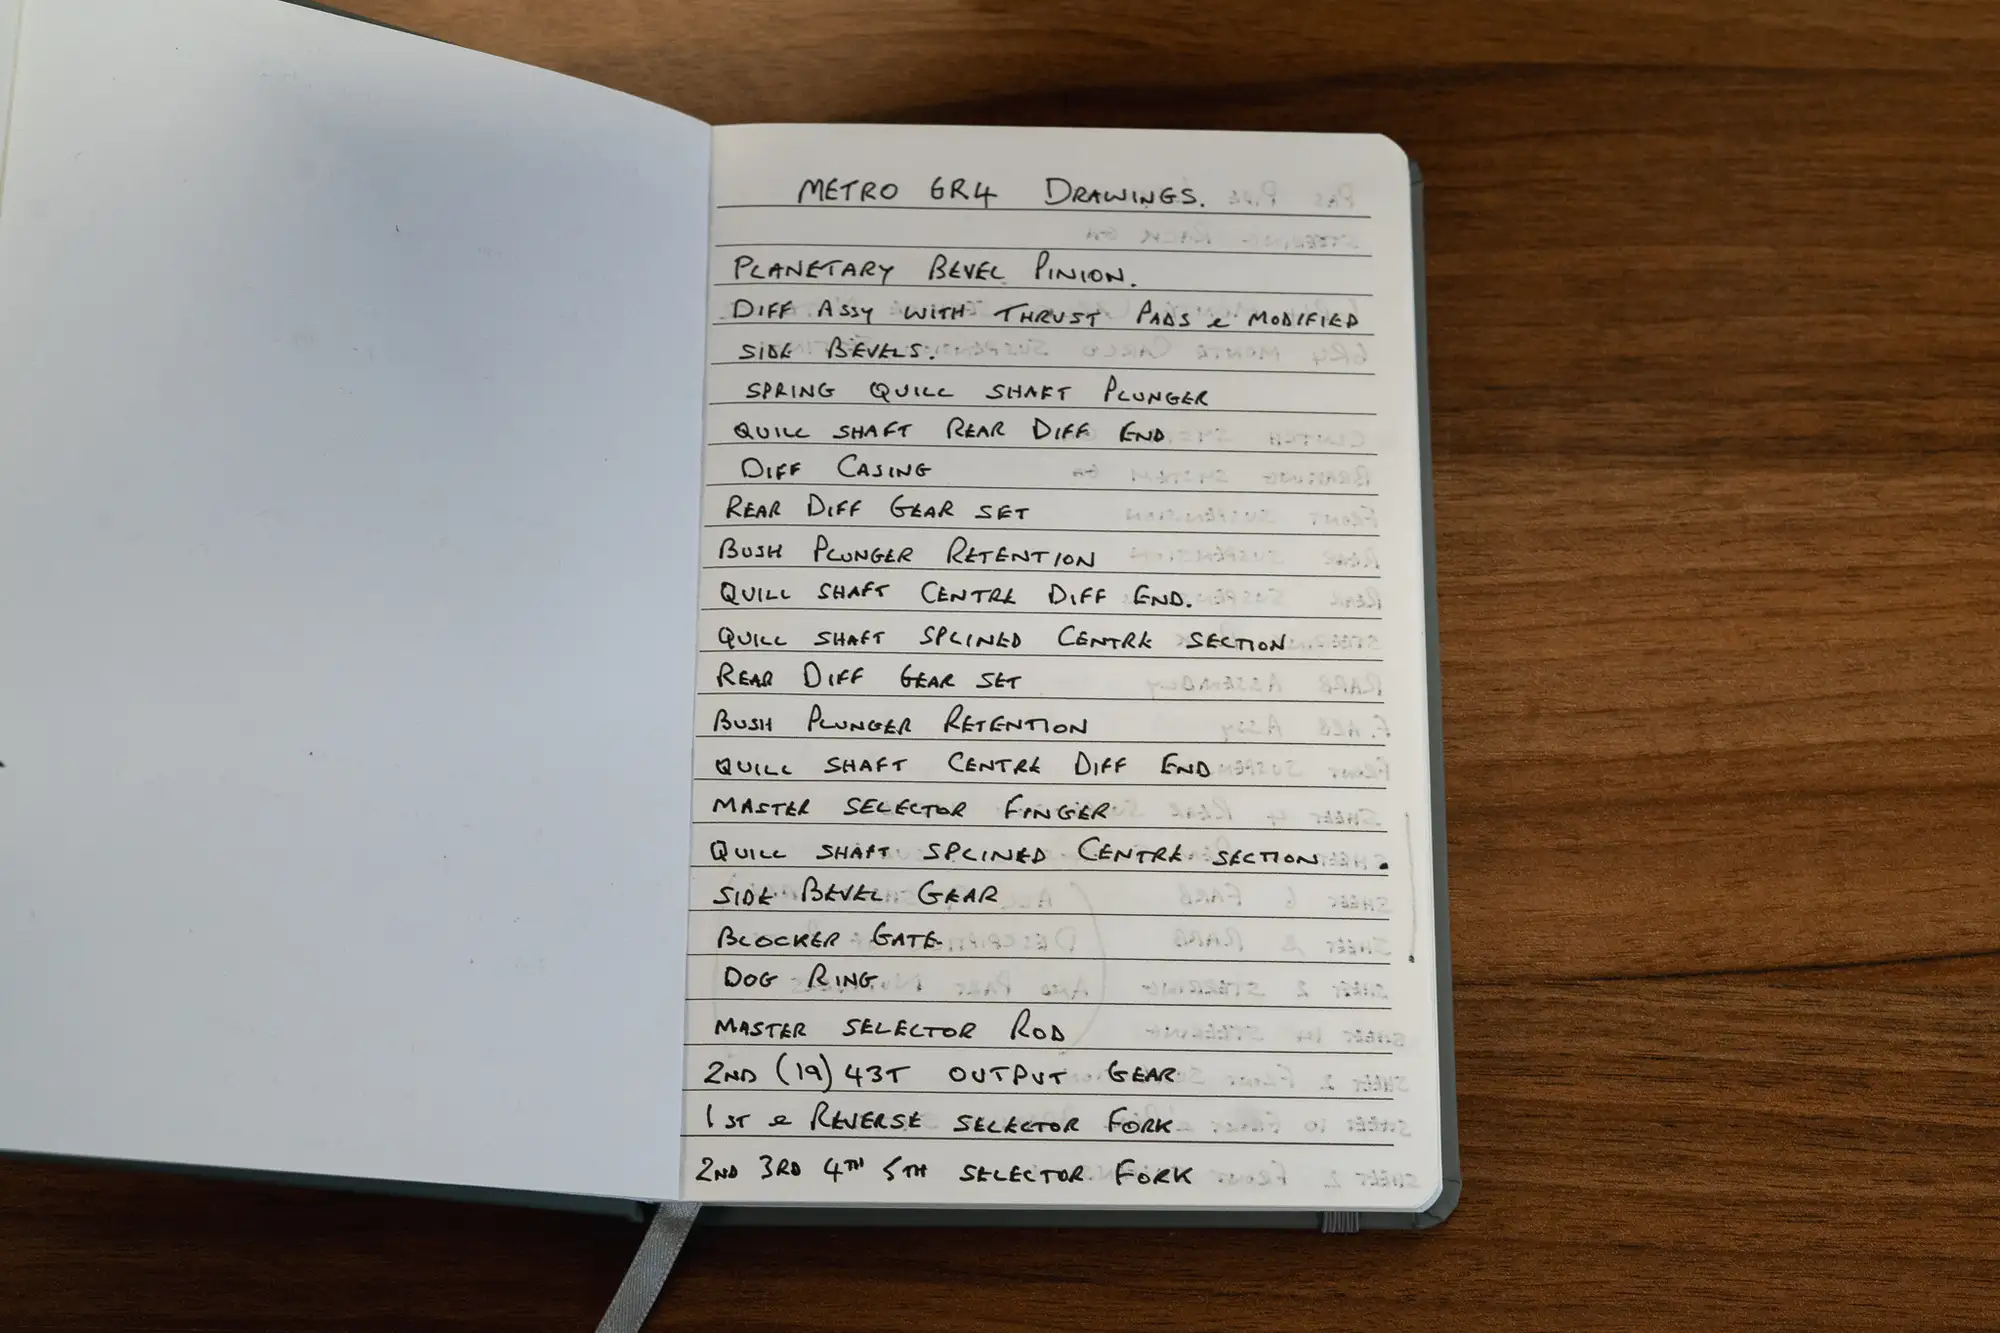 METRO 6R4 DRAWINGS.
PLANETARY BEVEL PINION.
DIFF ASSY WITH THRUST PADS & MODIFIED
SIDE BEVELS.
SPRING QUILL SHAFT PLUNGER
QUILL SHAFT REAR DIFF END
DIFF CASING
REAR DIFF GEAR SET
BUSH PLUNGER RETENTION
QUILL SHAFT CENTRE DIFF END.
QUILL SHAFT SPLINED CENTRE SECTION
REAR DIFF GEAR SET
BUSH PLUNGER RETENTION
QUILL SHAFT CENTRE DIFF END
MASTER SELECTOR FINGER
QUILL SHAFT SPLINED CENTRE SECTION.
SIDE BEVEL GEAR
BLOCKER GATE
DOG RING
MASTER SELECTOR ROD
2ND (19) 43T OUTPUT GEAR
1ST & REVERSE SELECTOR FORK
2ND 3RD 4TH 5TH SELECTOR FORK